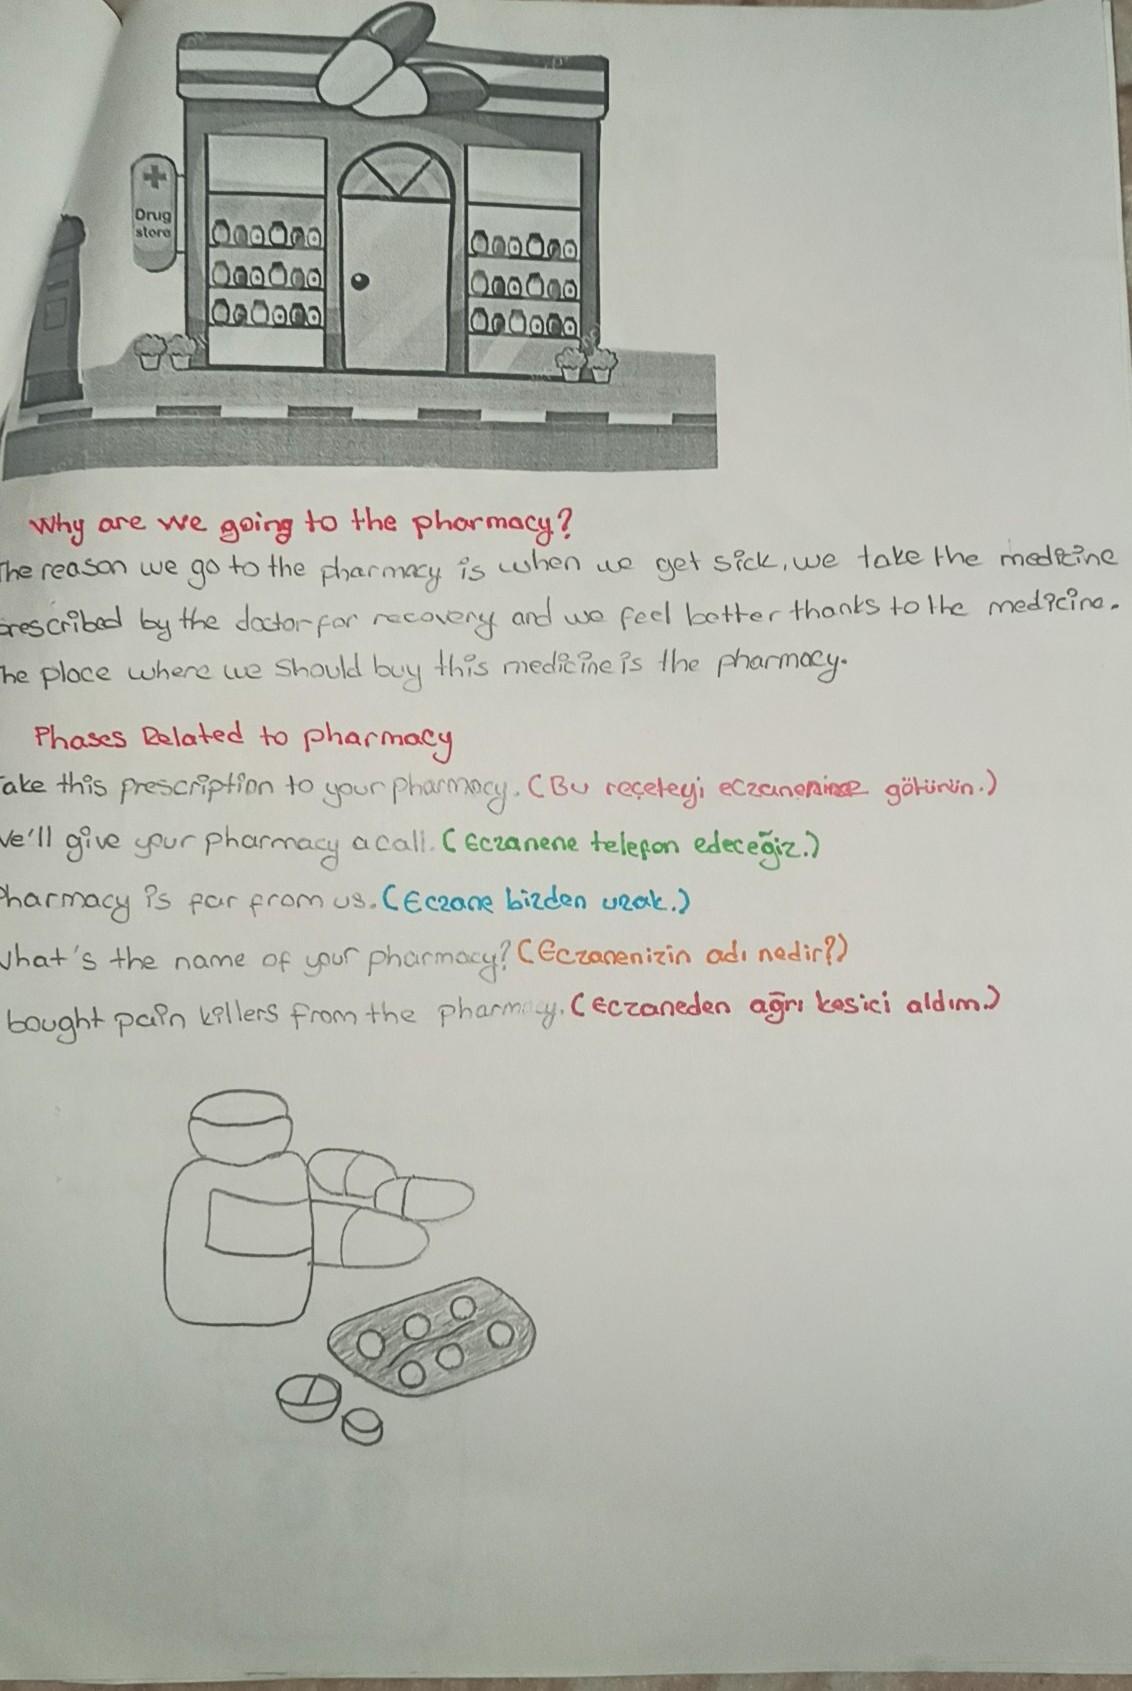 Drug
store
Why are we going to the pharmacy?
The reason we go to the pharmacy is when we get sick, we take the medicine
prescribed by the doctor for recovery and we feel better thanks to the medicine.
The place where we should buy this medicine is the pharmacy.
Phases Related to pharmacy
Take this prescription to your pharmacy. (Bu reçeteyi eczanenize götürün.)
We'll give your pharmacy a call. (Eczanene telefon edeceğiz.)
Pharmacy is far from us. (Eczane bizden uzak.)
What's the name of your pharmacy? (Eczanenizin adı nedir?)
bought pain killers from the pharmacy. (Eczaneden ağrı kesici aldım.)